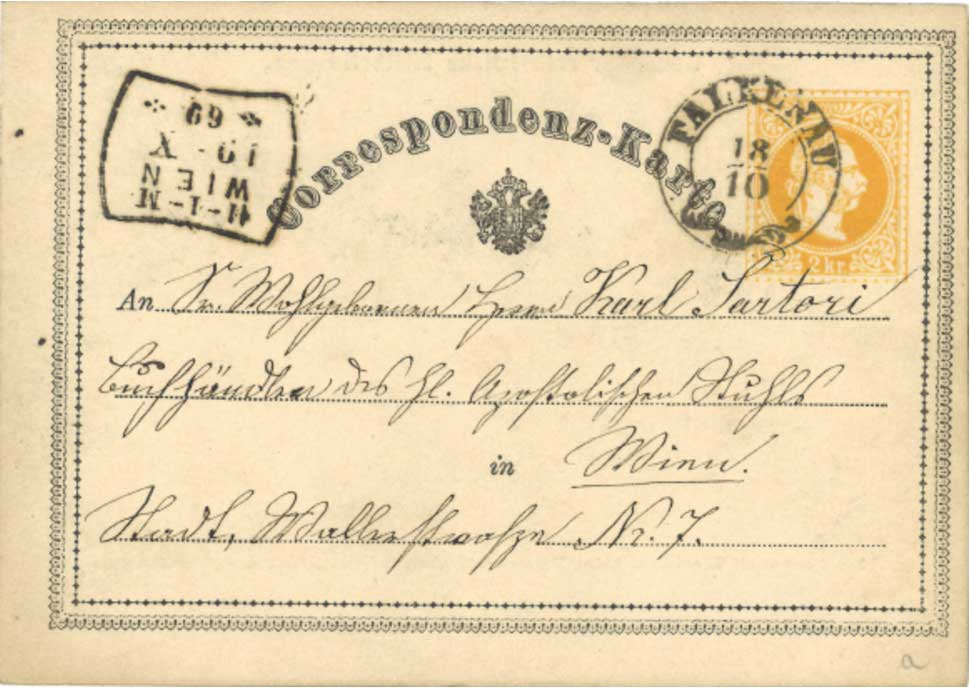 Correspondenz-Karte.
FALKENAU
18
10
2 Kr.
69
19. X
WIEN
11-1-M
An Sr. Wohlgeboren Herrn Karl Sartori
Buchhändler des hl. Apostolischen Stuhls
in Wien.
Stadt, Wallnerstrasse Nr. 7.
a